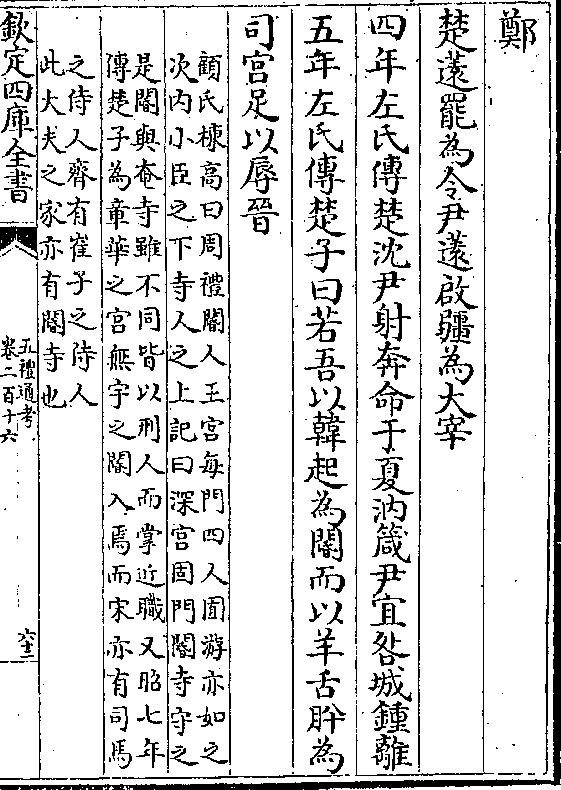 鄭
楚薳罷為令尹薳啟疆為大宰
四年左氏傳楚沈尹射奔命于夏汭箴尹宜咎城鍾離
五年左氏傳楚子曰若吾以韓起為閽而以羊舌肸為
司宫足以辱晉
顧氏棟高曰周禮閽人王宫每門四人囿游亦如之
次内小臣之下寺人之上記曰深宫固門閽寺守之
是閽與奄寺雖不同皆以刑人而掌近職又昭七年
傳楚子為章華之宫無宇之閽入焉而宋亦有司馬
之侍人齊有崔子之侍人
此大夫之家亦有閽寺也
欽定四庫全書
五禮通考
卷二百十六
六十三